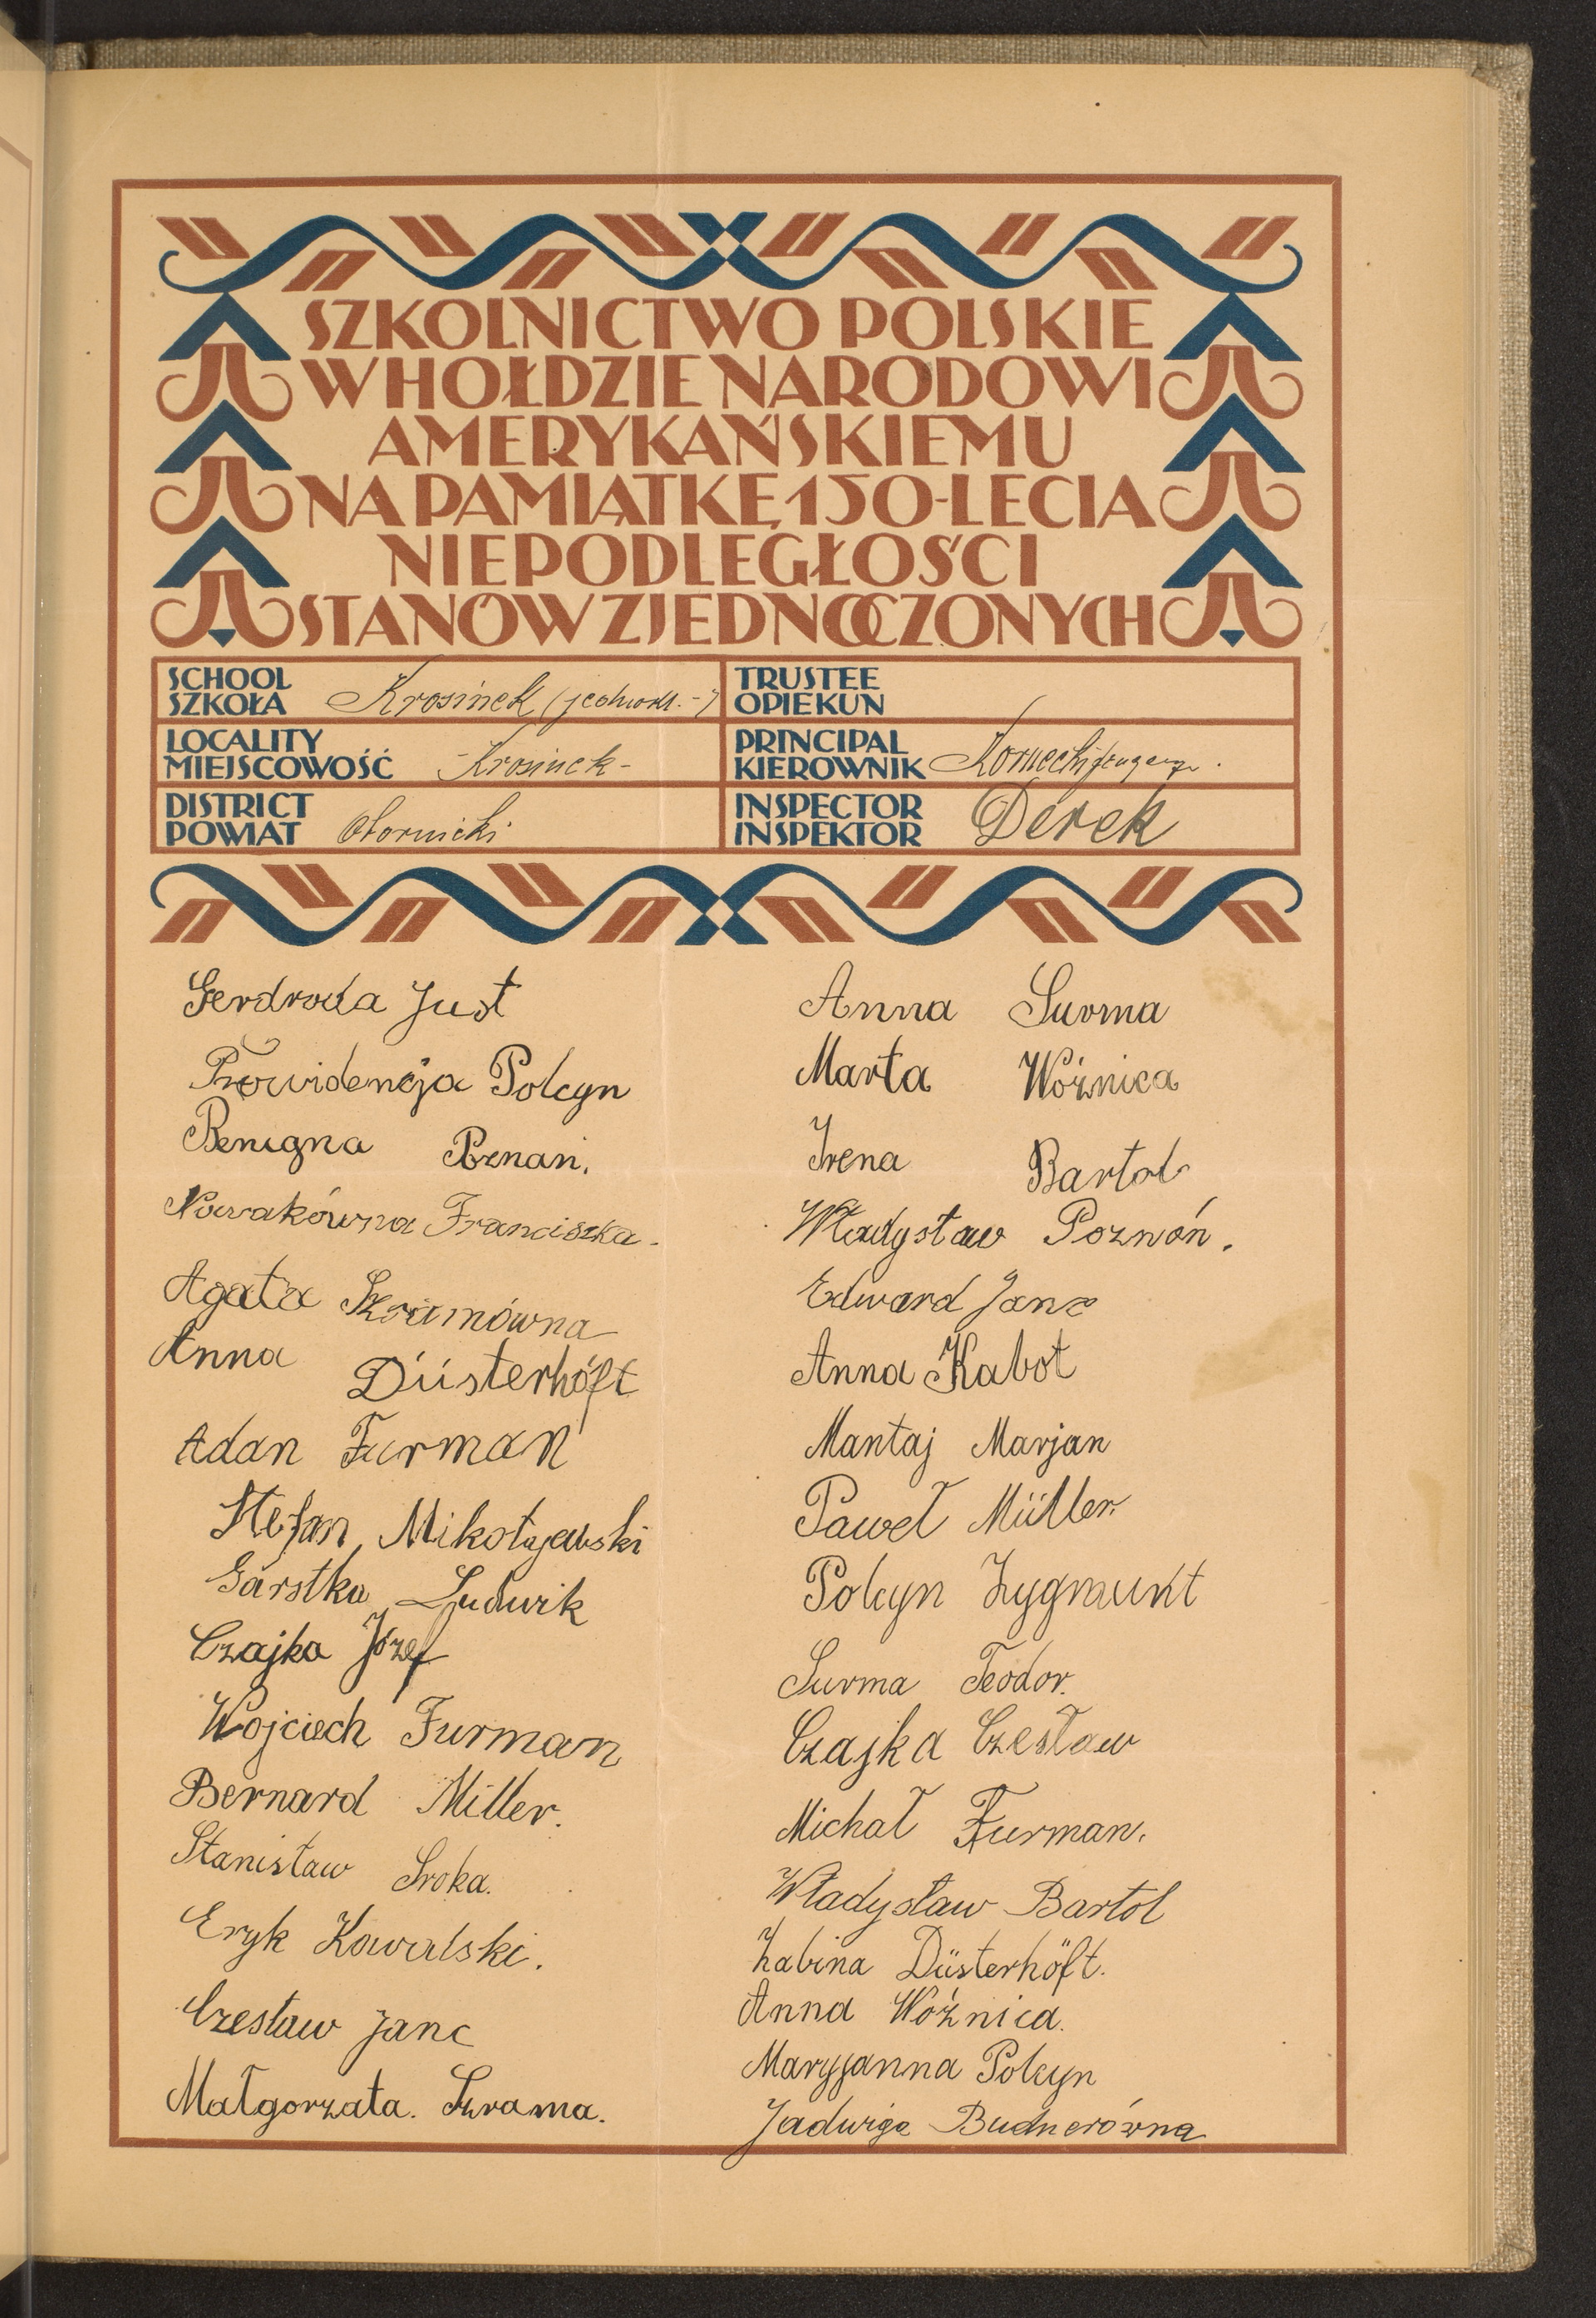 SZKOLNICTWO POLSKIE
W HOŁDZIE NARODOWI
AMERYKAŃSKIEMU
NA PAMIĄTKĘ 150-LECIA
NIEPODLEGŁOŚCI
STANÓW ZJEDNOCZONYCH
SCHOOL
SZKOŁA Krosinek (jednokl. -)
LOCALITY
MIEJSCOWOŚĆ -Krosinek-
DISTRICT
POWIAT Obornicki
TRUSTEE
OPIEKUN
PRINCIPAL
KIEROWNIK
INSPECTOR
INSPEKTOR Derek
Gerdroda Just
Prowidencja Polcyn
Benigna Poznań.
Nowakówna Franciszka.
Agata Szramówna
Anna Düsterhöft
Adan Furman
Stefan Mikołajewski
Garstka Ludwik
Czajka Józef
Wojciech Furman
Bernard Miller.
Stanisław Sroka.
Eryk Kowalski.
Czesław Janc
Małgorzata. Szrama.
Anna Surma
Marta Woźnica
Irena Bartol
Władysław Poznań.
Edward Janc
Anna Kabot
Mantaj Marjan
Paweł Müller
Polcyn Zygmunt
Surma Teodor.
Czajka Czesław
Michał Furman.
Władysław Bartol
Żabina Düsterhöft.
Anna Woźnica.
Maryjanna Polcyn
Jadwiga Budnerówna